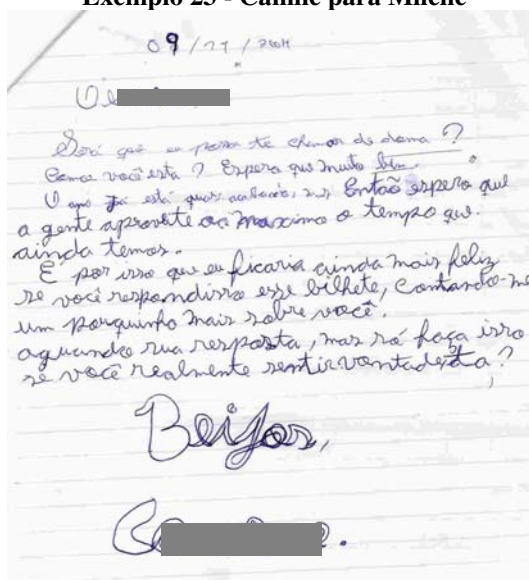 Exemplo 25 - Camile para Milene
09/11/2004
Será que eu posso te chamar de dama?
Como você esta? Espero que muito bem.
O ano já está quas acabando, Então espero que
a gente aproveite ao maximo o tempo que
ainda temos.
É por isso que eu ficaria ainda mais feliz
se você respondisse esse bilhete, contando-me
um porquinho mais sobre você.
aguando sua resposta, mas só faça isso
se você realmente sentir vontade, ta?
Beijos,